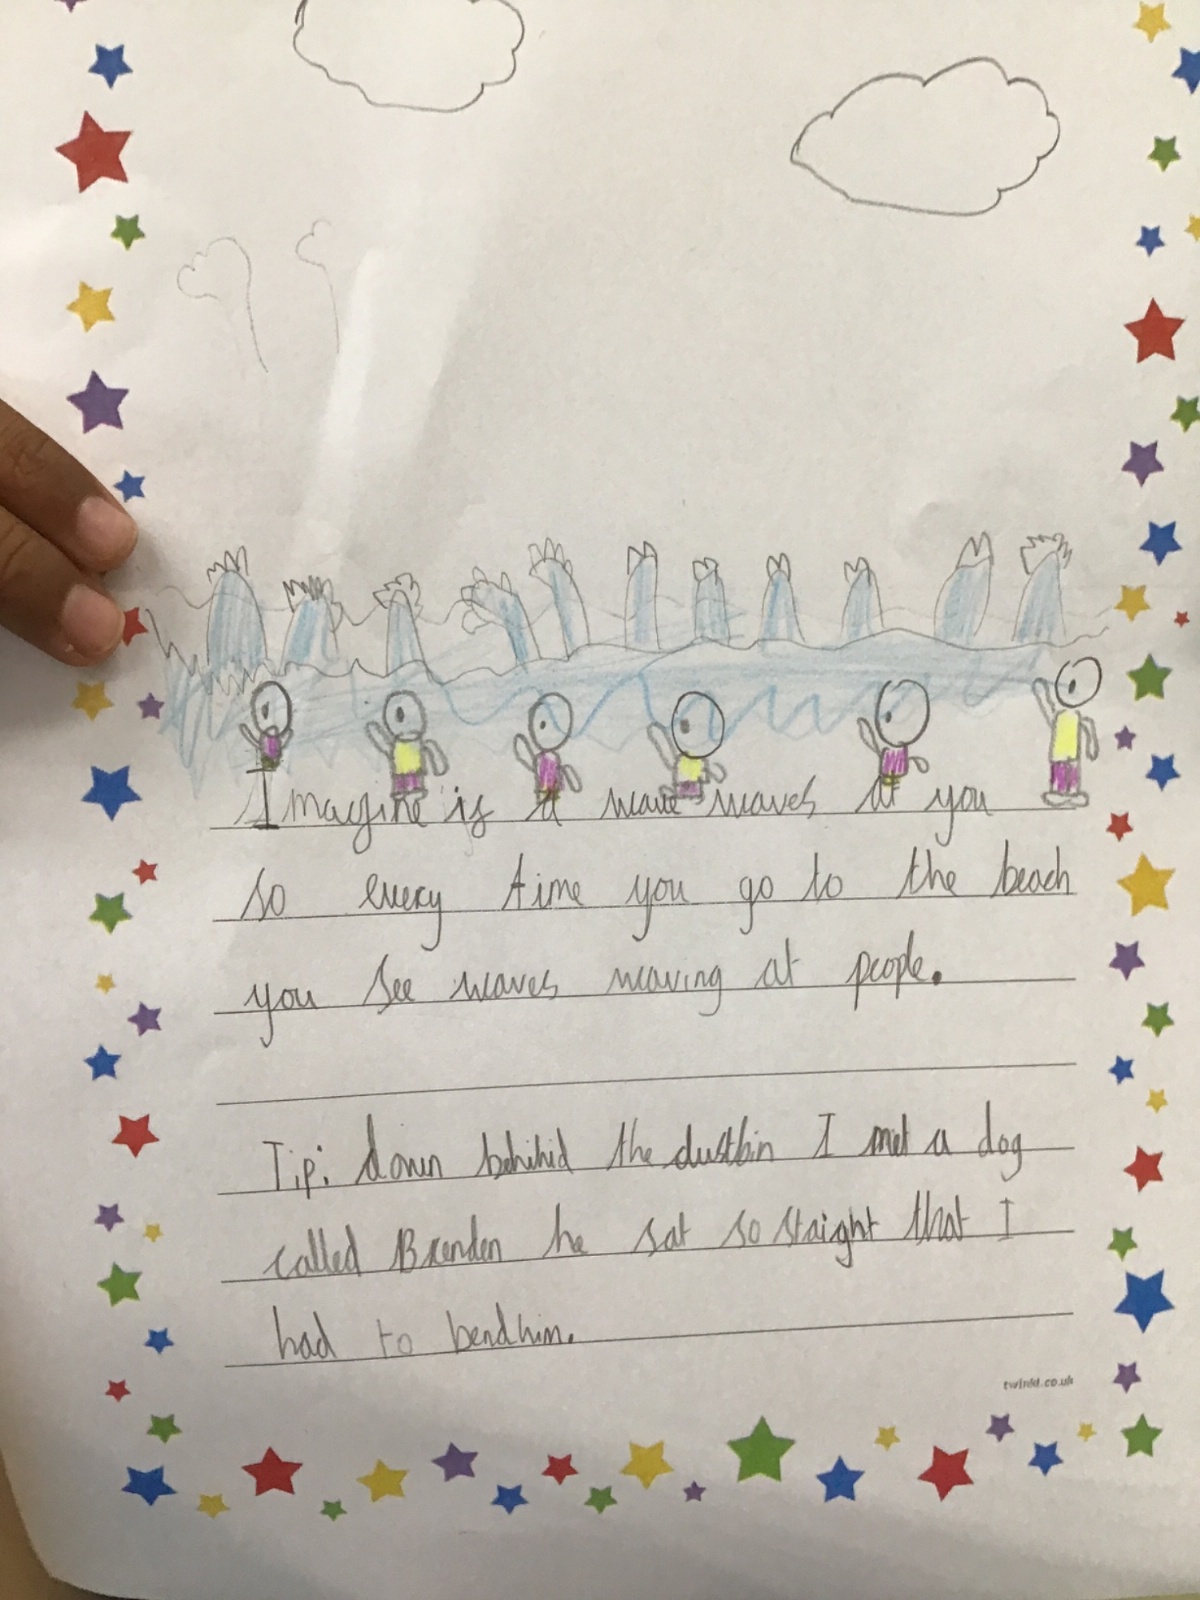 Imagine is a wave waves at you
so every time you go to the beach
you see waves waving at people.
Tip: down behihid the dustbin I met a dog
called Brenden he sat so staight that I
had to bend him.
twinkl.co.uk